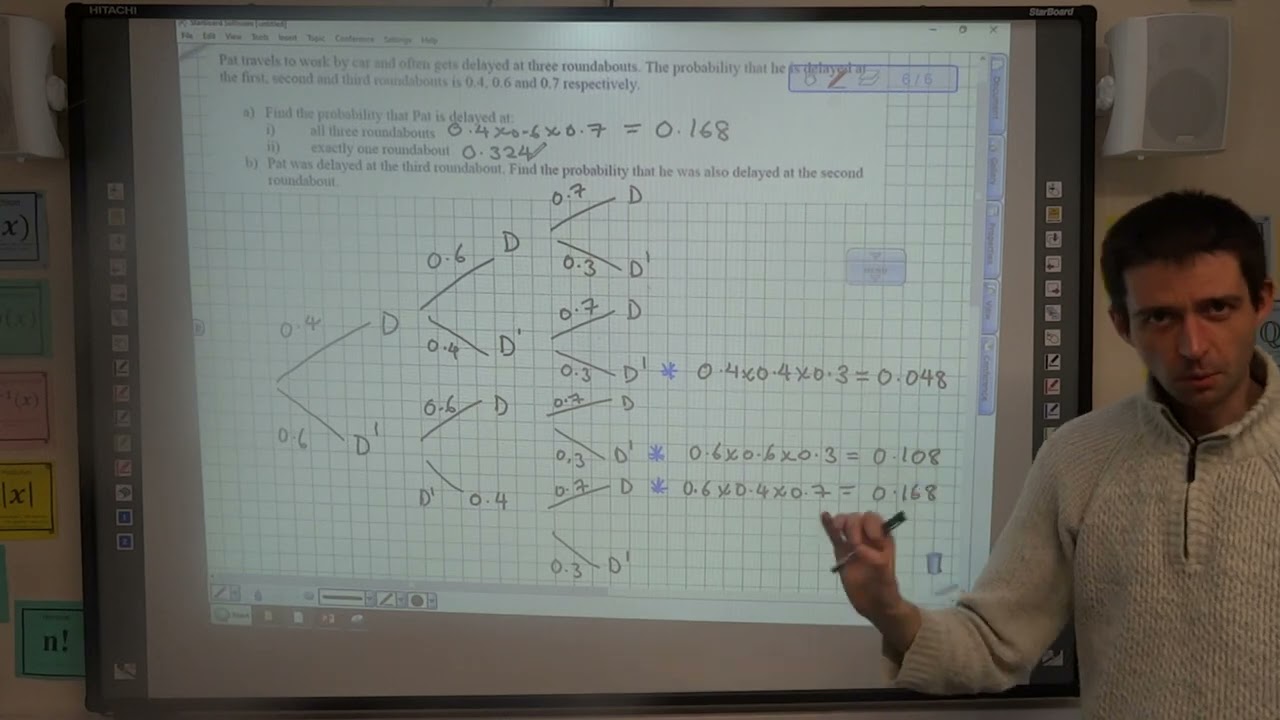 HITACHI
StarBoard
StarBoard Software [untitled]
File Edit View Tools Insert Topic Conference Settings Help
Pat travels to work by car and often gets delayed at three roundabouts. The probability that he is delayed at
6/6
the first, second and third roundabouts is 0.4, 0.6 and 0.7 respectively.
a) Find the probability that Pat is delayed at:
i) all three roundabouts 0.4×0.6×0.7 = 0.168
ii) exactly one roundabout 0.324
b) Pat was delayed at the third roundabout. Find the probability that he was also delayed at the second
roundabout.
0.7 D
0.6 D
0.3 D'
0.7 D
0.4 D
0.4 D'
0.3 D' * 0.4×0.4×0.3 = 0.048
0.6 D
0.7 D
0.6 D'
0.3 D' * 0.6×0.6×0.3 = 0.108
D' 0.4
0.7 D * 0.6×0.4×0.7 = 0.168
0.3 D'
MENU
Document
Gallery
Properties
View
Conference
x)
(x)
⁻¹(x)
|x|
n!